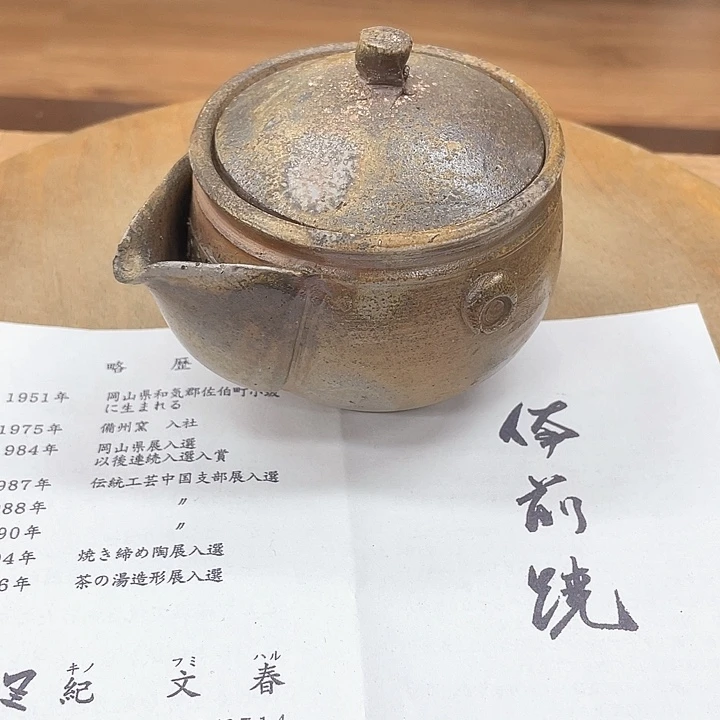 略 歴
1951年 岡山県和気郡佐伯町小坂
に生まれる
1975年 備州窯 入社
984年 岡山県展入選
以後連続入選入賞
987年 伝統工芸中国支部展入選
88年 〃
90年 〃
94年 焼き締め陶展入選
6年 茶の湯造形展入選
キノ フミ ハル
紀 文 春
備前焼